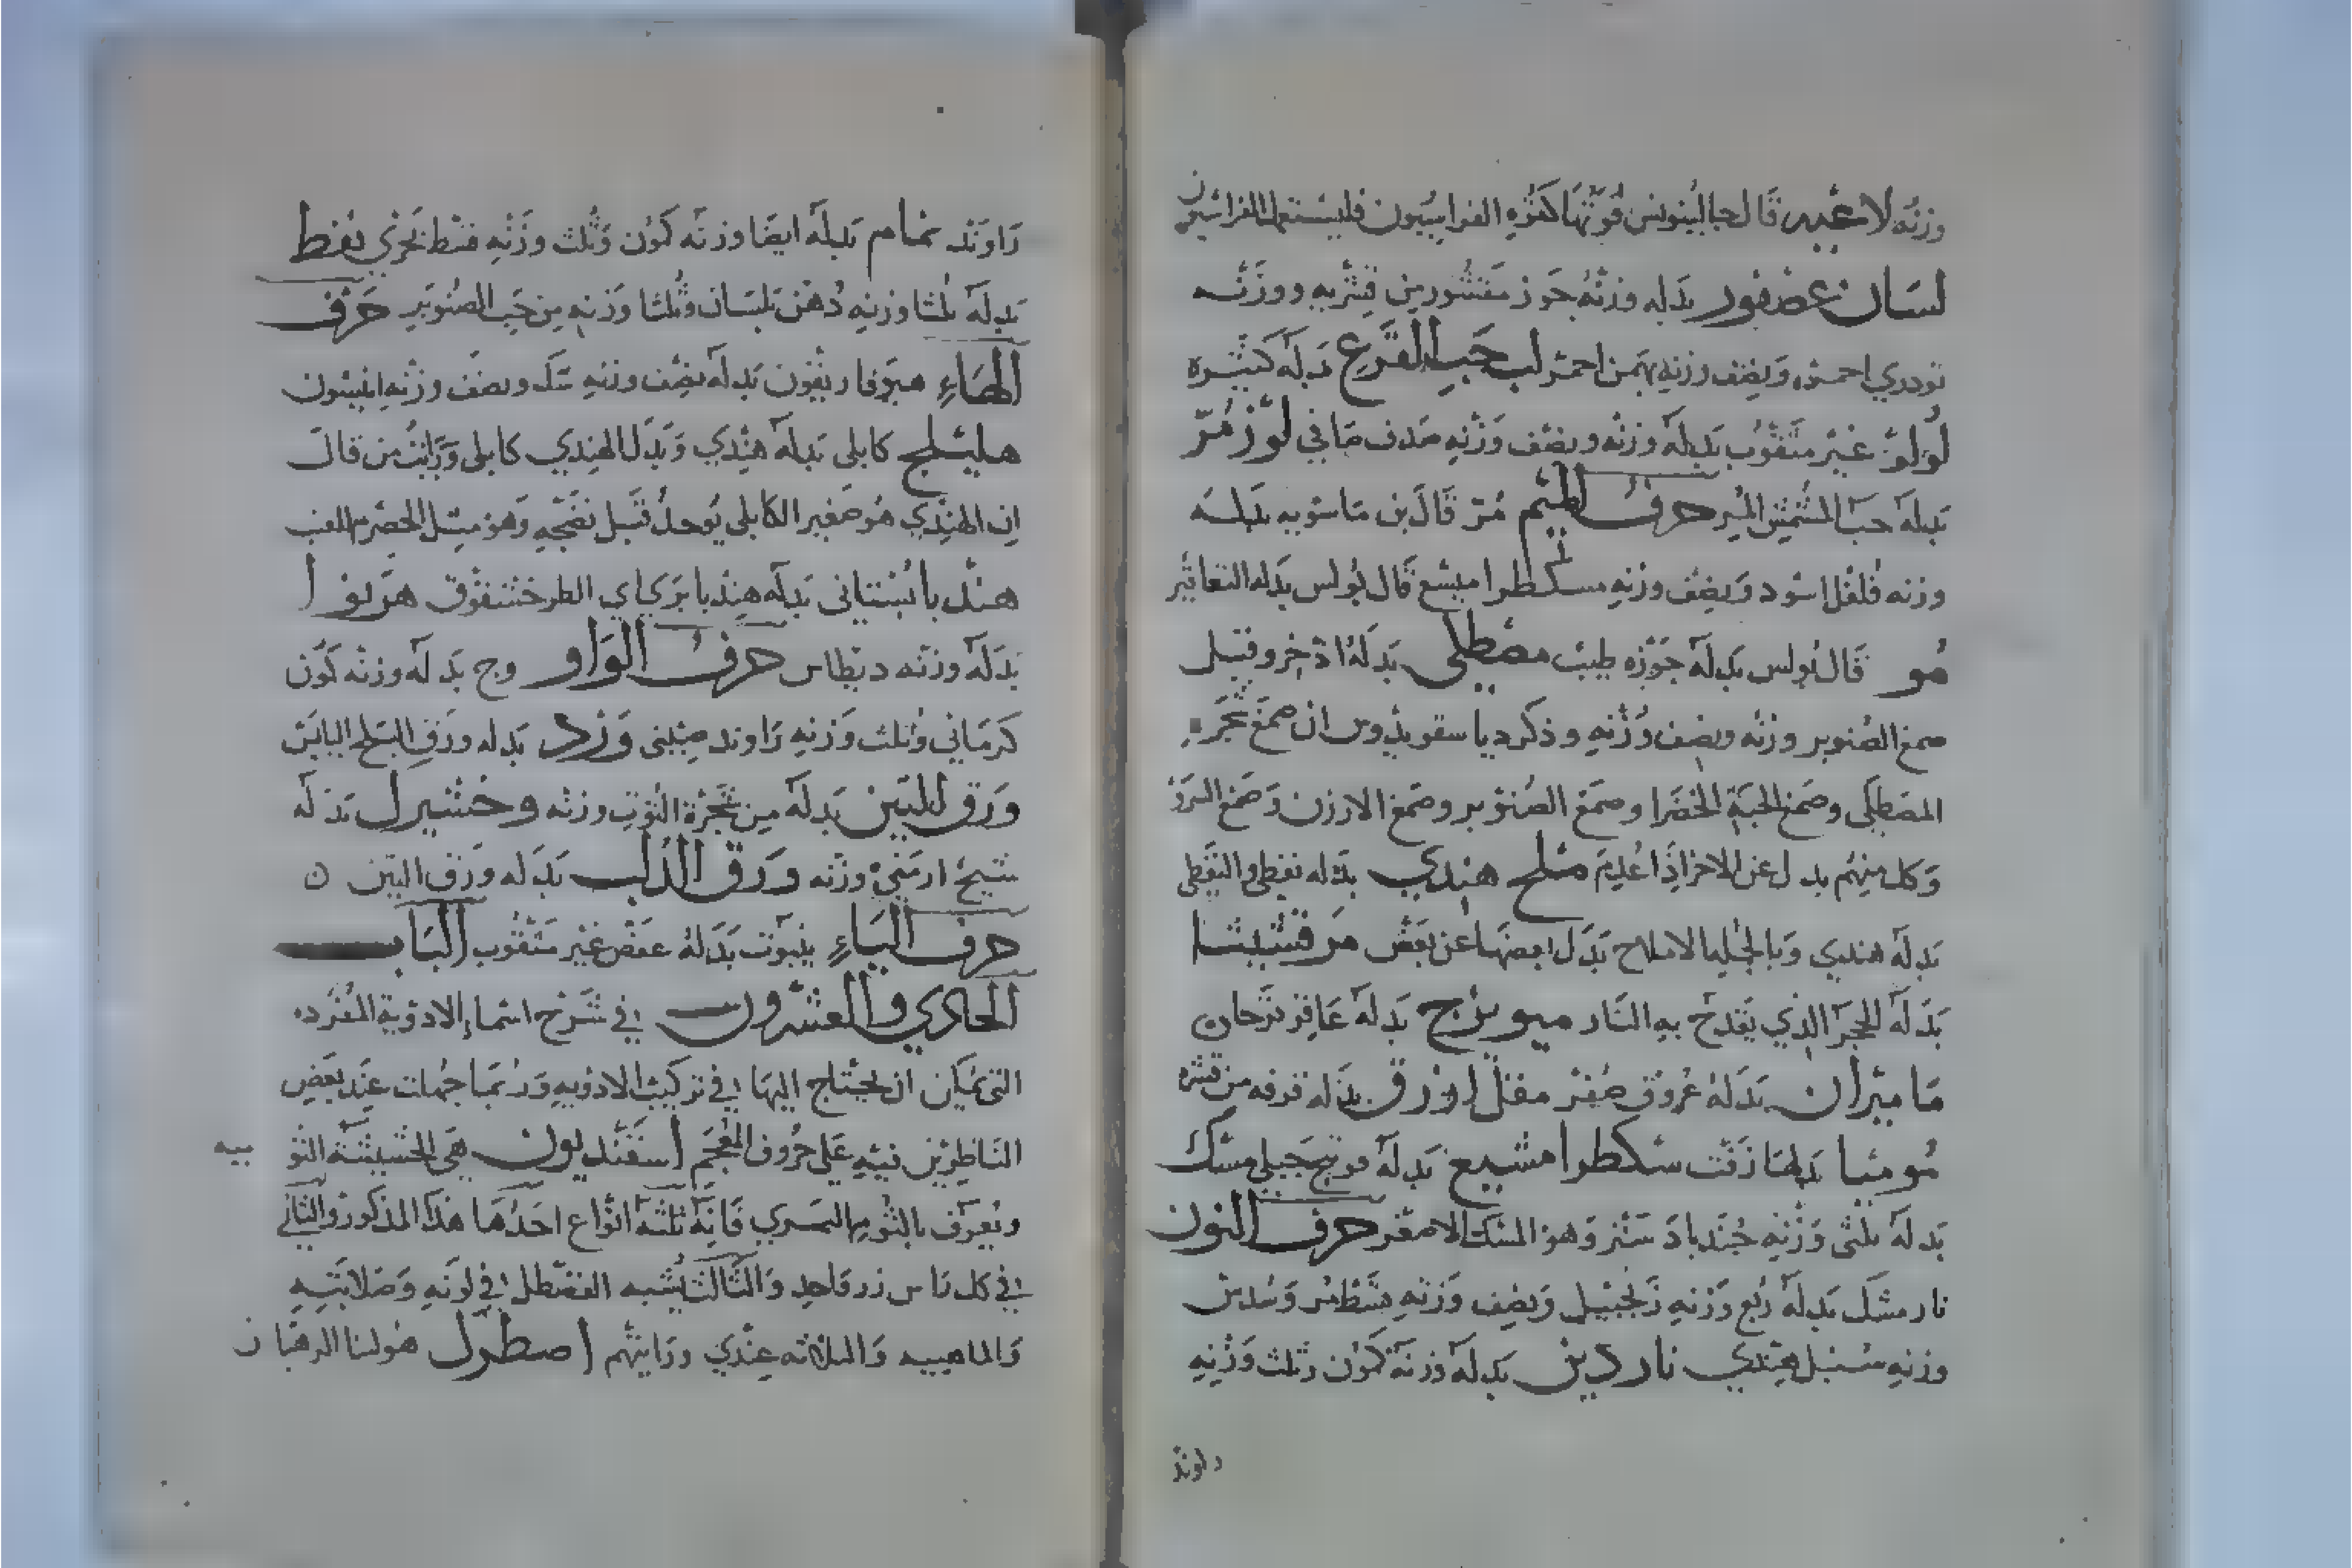 وزنه لاغيه قال جالينوس قوتها كقوه الفراسيون فليستعمل الفراسيون
لسان عصفور بدله وزنه جوز مقشور من قشريه ووزنه
تودري احمر ونصف وزنه بهمن احمر لب حب القرع بدله كثيره
لولو غير مثقوب بدله وزنه ونصف وزنه صدف صافي لوز مر
بدله حب المشمش المر حرف الميم مر قال بن ماسويه بدله
وزنه فلفل اسود ونصف وزنه مسكطرا مبشع قال بولس بدله
مو قال بولس بدله جوزه طيب مصطكى بدله اذخر وقيل
صمغ الصنوبر وزنه ونصف وزنه وذكر دياسقوريدوس ان صمغ شجره
المصطكى وصمغ الحبة الخضرا وصمغ الصنوبر وصمغ الارزن وصمغ
وكل منهم بدل عن الاخر اذا عدم ملح هندي بدله نفطي والنفطي
بدله هندي وبالجليا الاملاح بدل بعضها عن بعض مرقشيثا
بدله الحجر الذي يقدح به النار ميويزج بدله عاقر قرحان
ماميران بدله عروق صفر مقل ازرق بدله قرفه من قشره
موميا بدلها زفت سكطرا مشيع بدله فوتنج جبلي مسك
بدله ثلثي وزنه جندبادستر وهو المسك الاصغر حرف النون
نارمشك بدله ربع وزنه زنجبيل ونصف وزنه وسدس
وزنه سنبل هندي ناردين بدله وزنه كمون وثلث وزنه
راوند
راوند نمام بدله ايضا وزنه كمون وثلث وزنه قنط بحري نفط
بدله ثلثا وزنه دهن بلسان وثلثا وزنه من حب الصنوبر حرف
الهاء هيوفاريقون بدله نصف وزنه سك ونصف وزنه انيسون
هليلج كابلى بدله هندي وبدل الهندي كابلى ورايت من قال
ان الهندي هو صغير الكابلى يوحد قبل نضجه وهو مثل الحصرم العنب
هندبا بستانى بدله هندبا بري اي الطرخشقوق هرنوا
بدله وزنه حرف الواو وج بدله وزنه كمون
كرماني وثلث وزنه راوند صينى ورد بدله ورق البلح اليابس
ورق التين بدله من شجرة التوت وزنه وخشيرل بدله
شيح ارمني وزنه ورق الدلب بدله ورق التين ن
حرف الياء ينبوت بدله عفص غير مثقوب الباب
الحادي والعشرون في شرح اسماء الادوية المفرده
التى يمكن ان يحتاج اليها في تركيب الادويه وربما جهلت عند بعض
الناظرين فيه على حروف المعجم اسفنديون هي الحشيشة الثو
ميه
ويعرف بالثوم البري فانه ثلثه انواع احدها هذا المذكور والثاني
في كل راس زر واحد والثالث يشبه القسطل في لونه وصلابته
والماهييه والثلاثه عندي ورايتهم اصطرل هو لسنا الرهبان